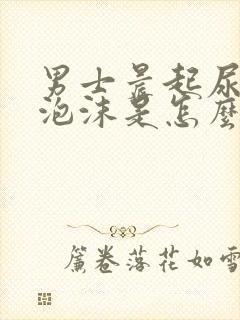 男士晨起尿
泡沫是怎麼
簾卷落花如雪